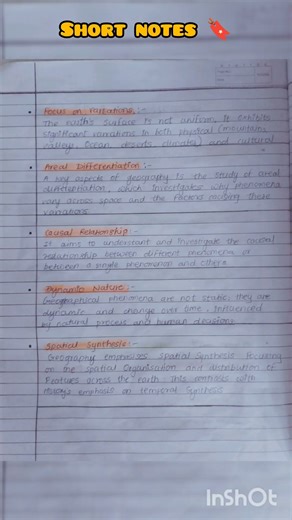 SHORT NOTES
Focus on Variations :-
The earth's surface is not uniform, It exhibits
significant variations in both physical (mountain,
valley, Ocean, deserts, climate) and cultural
Areal Differentiation :-
A key aspects of geography is the study of areal
differentiation, which investigates why phenomena
vary across space and the factors causing these
variations
Causal Relationship :-
It aims to understand and investigate the causal
relationship between different phenomena or
between a single phenomenon and others
Dynamic Nature :-
Geographical phenomena are not static, they are
dynamic and change over time, influenced
by natural process and human decisions
Spatial Synthesis :-
Geography emphasizes spatial synthesis focusing
on the spatial organisation and distribution of
features across the earth This contrasts with
History's emphasis on temporal synthesis
InShOt